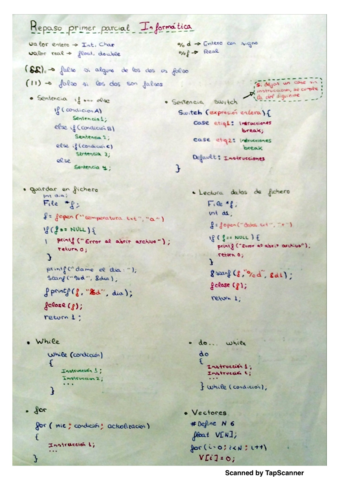 Repaso primer parcial Informática
valor entero → Int, Char
valor real → float, double
%d → Entero con signo
%f → Real
(&&) → false si alguno de los dos es false
(||) → false si los dos son false
• Sentencia if ... else
if (condición A)
Sentencia 1;
else if (condición B)
Sentencia 2;
else if (condición C)
Sentencia 3;
else
Sentencia 4;
• Sentencia Switch
Switch (expresión entera) {
case etiq1: instrucciones
break;
case etiq2: instrucciones
break;
Default: Instrucciones
}
• guardar en fichero
int dia;
File *f;
f = fopen ("temperatura.txt", "a")
if (f == NULL) {
printf ("Error al abrir archivo");
return 0;
}
printf ("dame el dia: ");
Scanf ("%d", &dia);
fprintf (f, "%d", dia);
fclose (f);
return 1;
• Lectura datos de fichero
File *f;
int
f = fopen ("
if (f == NULL) {
printf ("Error al abrir archivo");
return 0;
}
fscanf (f, "%d",
fclose (f);
return 1;
• While
while (condición)
{
Instrucción 1;
Instrucción 2;
...
}
• do... while
do
{
Instrucción 1;
Instrucción 2;
...
} while (condición);
• for
for (inic; condición; actualización)
{
Instrucción 1;
}
• Vectores
#Define N 6
float V[N];
for (i=0; i<N; i++)
V[i]=0;
Scanned by TapScanner